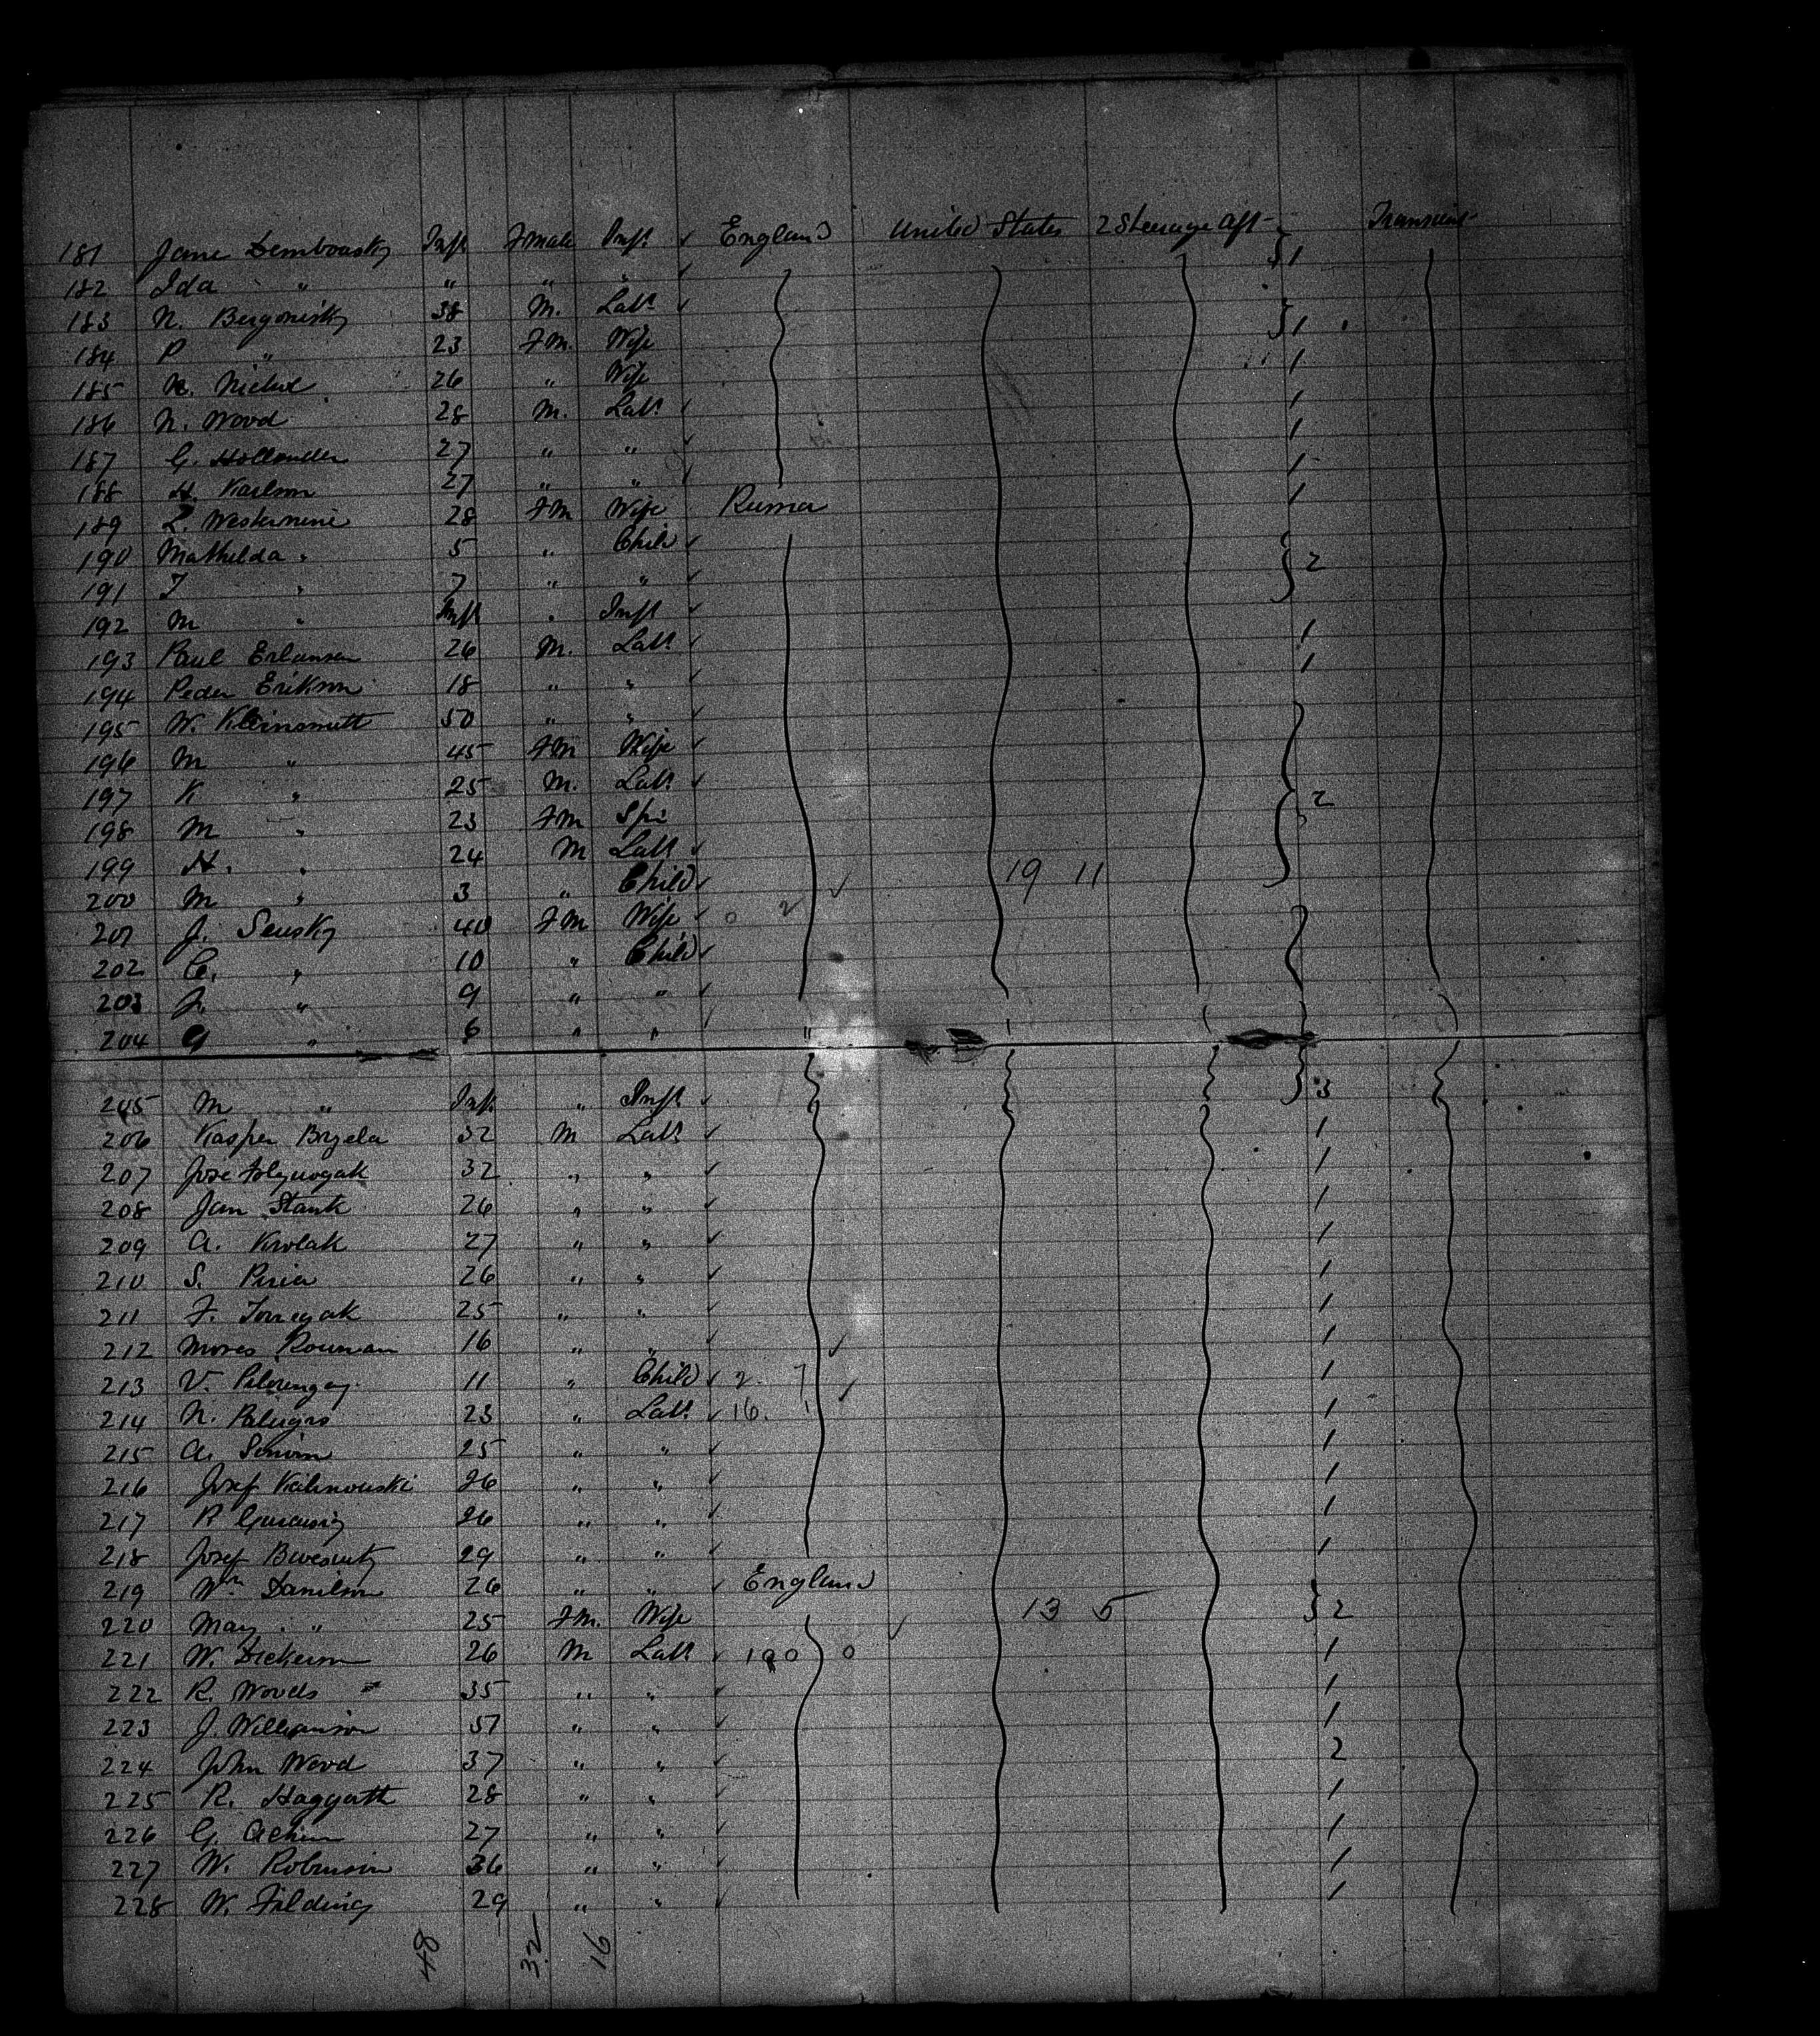 181 Jane Dembousky Inft Fmale Inft ✓ England United States 2 Steerage Aft } 1 Transient
182 Ida " " " " ✓
183 N. Bergonisky 38 M. Labr ✓ } 1
184 P " 23 FM. Wife 1
185 26 " Wife
186 N. Wood 28 M. Labr ✓ 1
187 G. Hollander 27 " " ✓ 1
188 H. Karlson 27 " " ✓ 1
189 L. 28 FM Wife Russia 1
190 Mathilda " 5 " Child ✓
191 T " 7 " " ✓ } 2
192 M " Inft " Inft ✓
193 Paul Erlansen 26 M. Labr ✓ 1
194 Peder Erikson 18 " " ✓ 1
195 W. Kleinsmutt 50 " " ✓
196 M " 45 FM Wife ✓
197 K " 25 M. Labr ✓ } 2
198 M " 23 FM Spr
199 H. " 24 M Labr ✓ 19 11
200 M " 3 " Child ✓ ✓
201 J. Sensky 40 FM Wife ✓ 0 2
202 C. " 10 " Child ✓
203 J. " 9 " " ✓
204 G " 6 " " ✓ "
205 M " Inft " Inft ✓ } 3
206 Kasper Bryela 32 M Labr ✓ 1
207 Jose 32 " " ✓ 1
208 Jan Stank 26 " " ✓ 1
209 A. Krolak 27 " " ✓ 1
210 S. Piria 26 " " ✓ 1
211 F. 25 " " ✓ 1
212 Moses Rouman 16 " " ✓ ✓ 1
213 V. 11 " Child ✓ 2. 7 ✓ 1
214 N. Palugro 23 " Labr ✓ 16. 1 1
215 A. 25 " " ✓ 1
216 Josef Kalinouski 26 " " ✓ 1
217 R 26 " " ✓ 1
218 Josef 29 " " ✓ 1
219 Wm Danilson 26 " " ✓ England
220 May " 25 FM. Wife ✓ 13 5 } 2
221 W. Dickerson 26 M Labr ✓ 100 0 1
222 R. Woods 35 " " ✓ 1
223 J. Williamson 57 " " ✓ 1
224 John Wood 37 " " ✓ 2
225 R. Haggarth 28 " " ✓ 1
226 G. 27 " " ✓ 1
227 W. Robinson 36 " " ✓ 1
228 W. Filding 29 " " ✓ 1
48 32 16